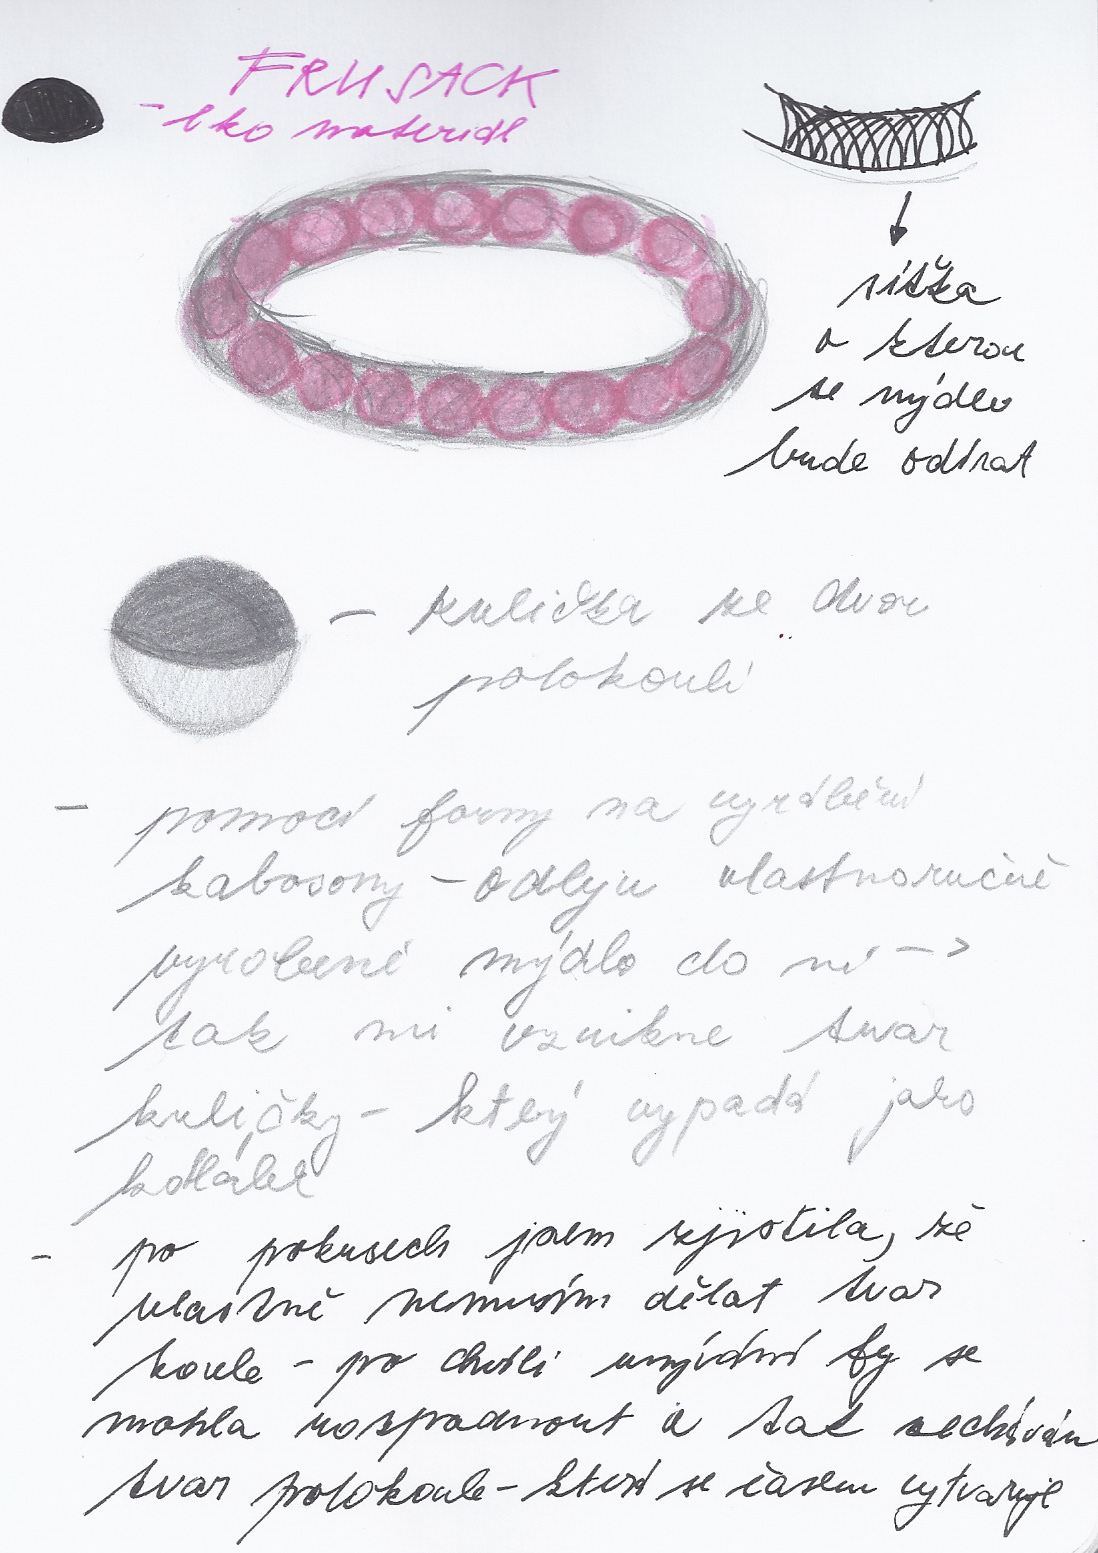 FRUSACK
- eko materiál
síťka
o kterou
se mýdlo
bude odírat
- kulička ze dvou
polokoulí
- pomocí formy na vyrábění
kabosony - odleju vlastnoručně
vyrobené mýdlo do ní ->
tak mi vznikne tvar
kuličky - který vypadá jako
korálek
- po pokusech jsem zjistila, že
vlastně nemusím dělat tvar
koule - po chvíli umývání by se
mohla rozpadnout a tak nechávám
tvar polokoule - která se časem vytvaruje